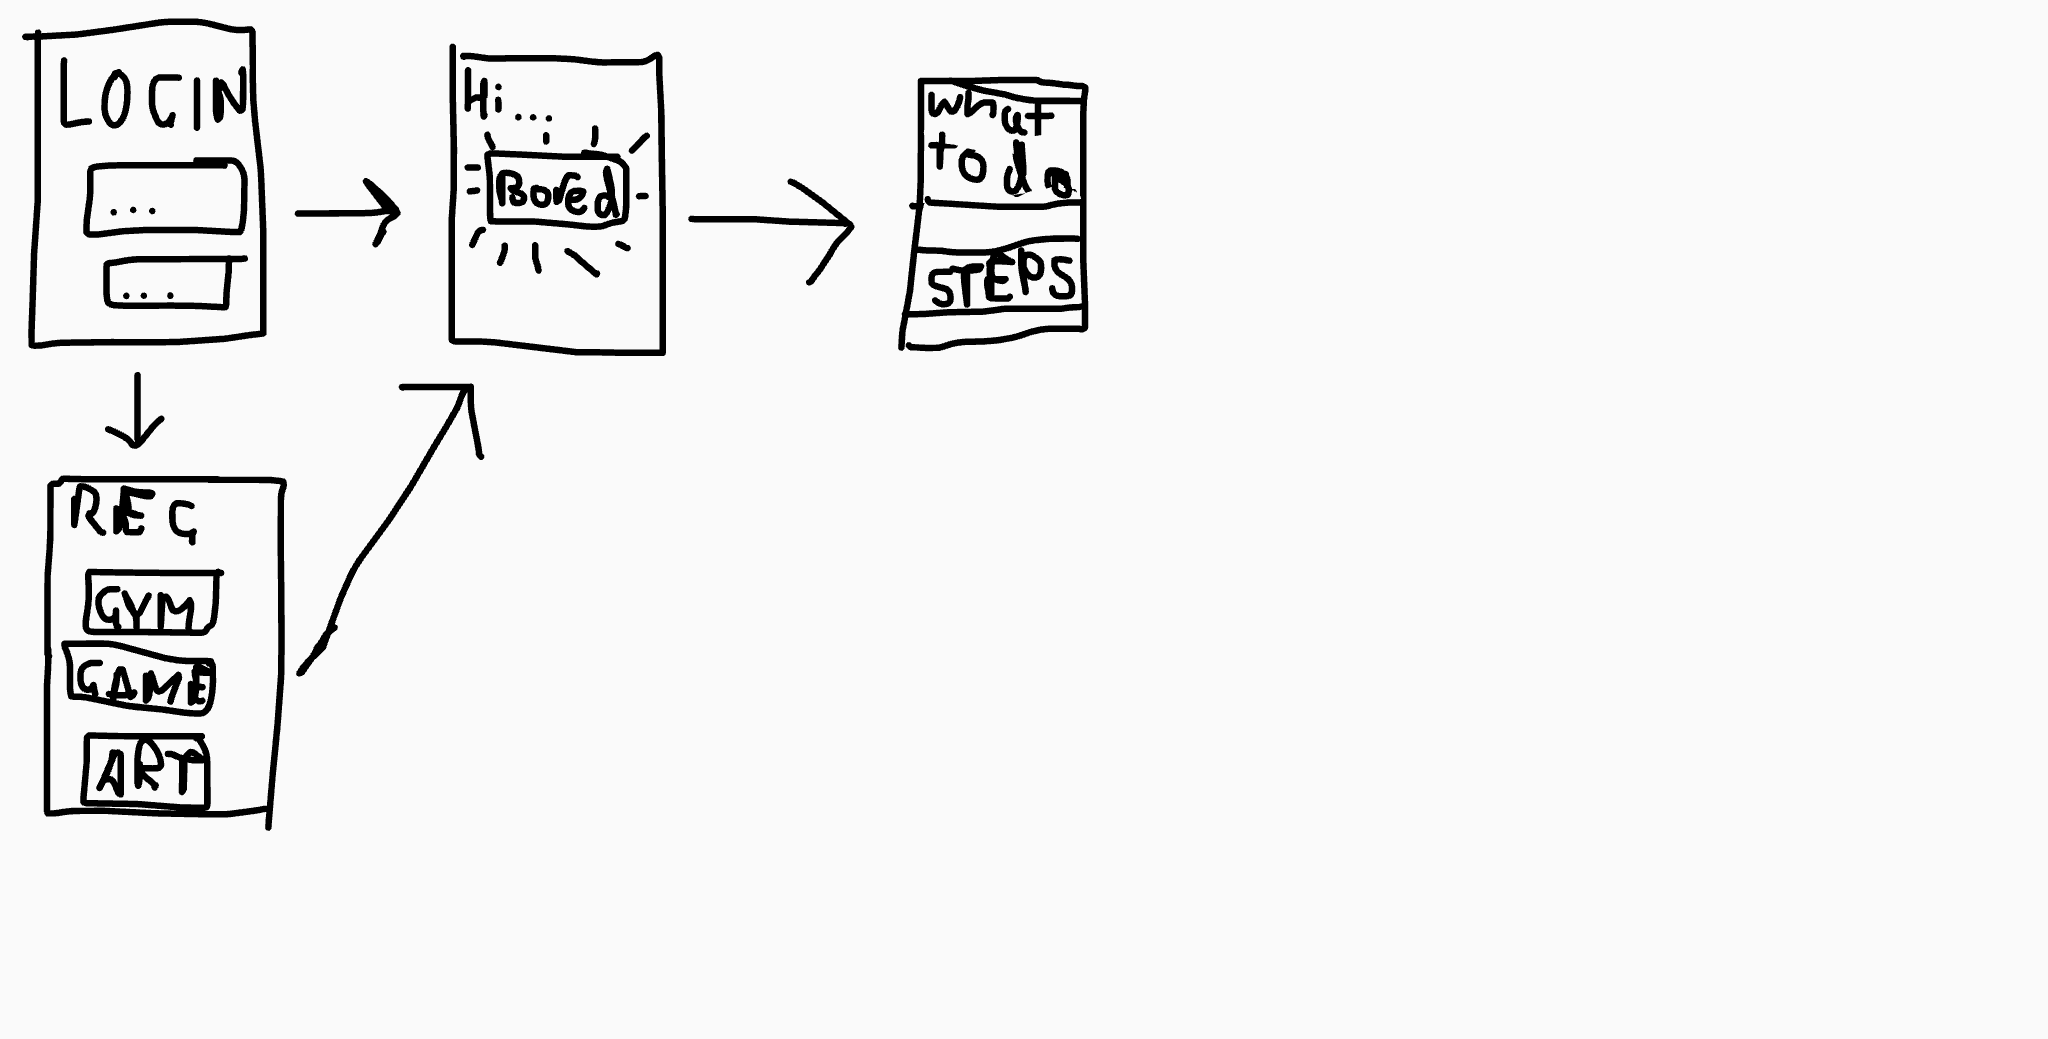 LOGIN
...
...
Hi...
Bored
what
to do
STEPS
REG
GYM
GAME
ART